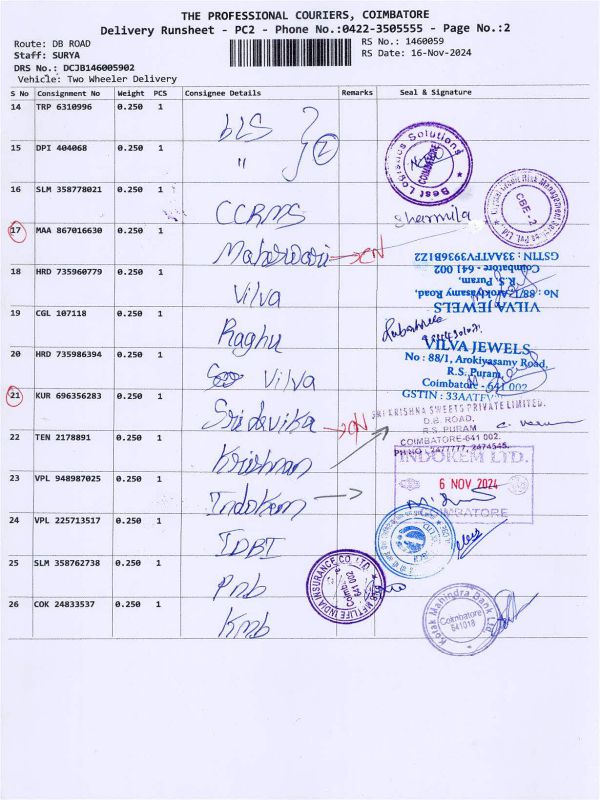 THE PROFESSIONAL COURIERS, COIMBATORE
Delivery Runsheet - PC2 - Phone No.:0422-3505555 - Page No.:2
Route: DB ROAD
RS No.: 1460059
Staff: SURYA
RS Date: 16-Nov-2024
DRS No.: DCJB146005902
Vehicle: Two Wheeler Delivery
S No Consignment No Weight PCS Consignee Details Remarks Seal & Signature
14 TRP 6310996 0.250 1 bLS
15 DPI 404068 0.250 1 " 2
Best Logistics Solutions COIMBATORE
16 SLM 358778021 0.250 1 CCRMS Sharmila
CBE. 2
17 MAA 867016630 0.250 1 Maharwari CN
GSTIN : 33AATFV3936B1Z2
Coimbatore - 641 002
R.S. Puram,
No : 88/1, Arokiyasamy Road,
VILVA JEWELS
18 HRD 735960779 0.250 1 Vilva
19 CGL 107118 0.250 1 Raghu
20 HRD 735986394 0.250 1 Vilva
VILVA JEWELS
No : 88/1, Arokiyasamy Road,
R.S. Puram,
Coimbatore - 641 002
GSTIN : 33AATFV
21 KUR 696356283 0.250 1 Sridevika CN
SRI KRISHNA SWEETS PRIVATE LIMITED.
D.B. ROAD,
R.S. PURAM
COIMBATORE-641 002.
PH NO : 2477777, 2474545.
22 TEN 2178891 0.250 1 Krishnan
23 VPL 948987025 0.250 1 Indokem
INDOKEM LTD.
6 NOV 2024
COIMBATORE
24 VPL 225713517 0.250 1 IDBI
25 SLM 358762738 0.250 1 Pnb
PNB METLIFE INDIA INSURANCE CO. LTD.
641 002
26 COK 24833537 0.250 1 Kmb
Kotak Mahindra Bank Ltd
Coimbatore
641018